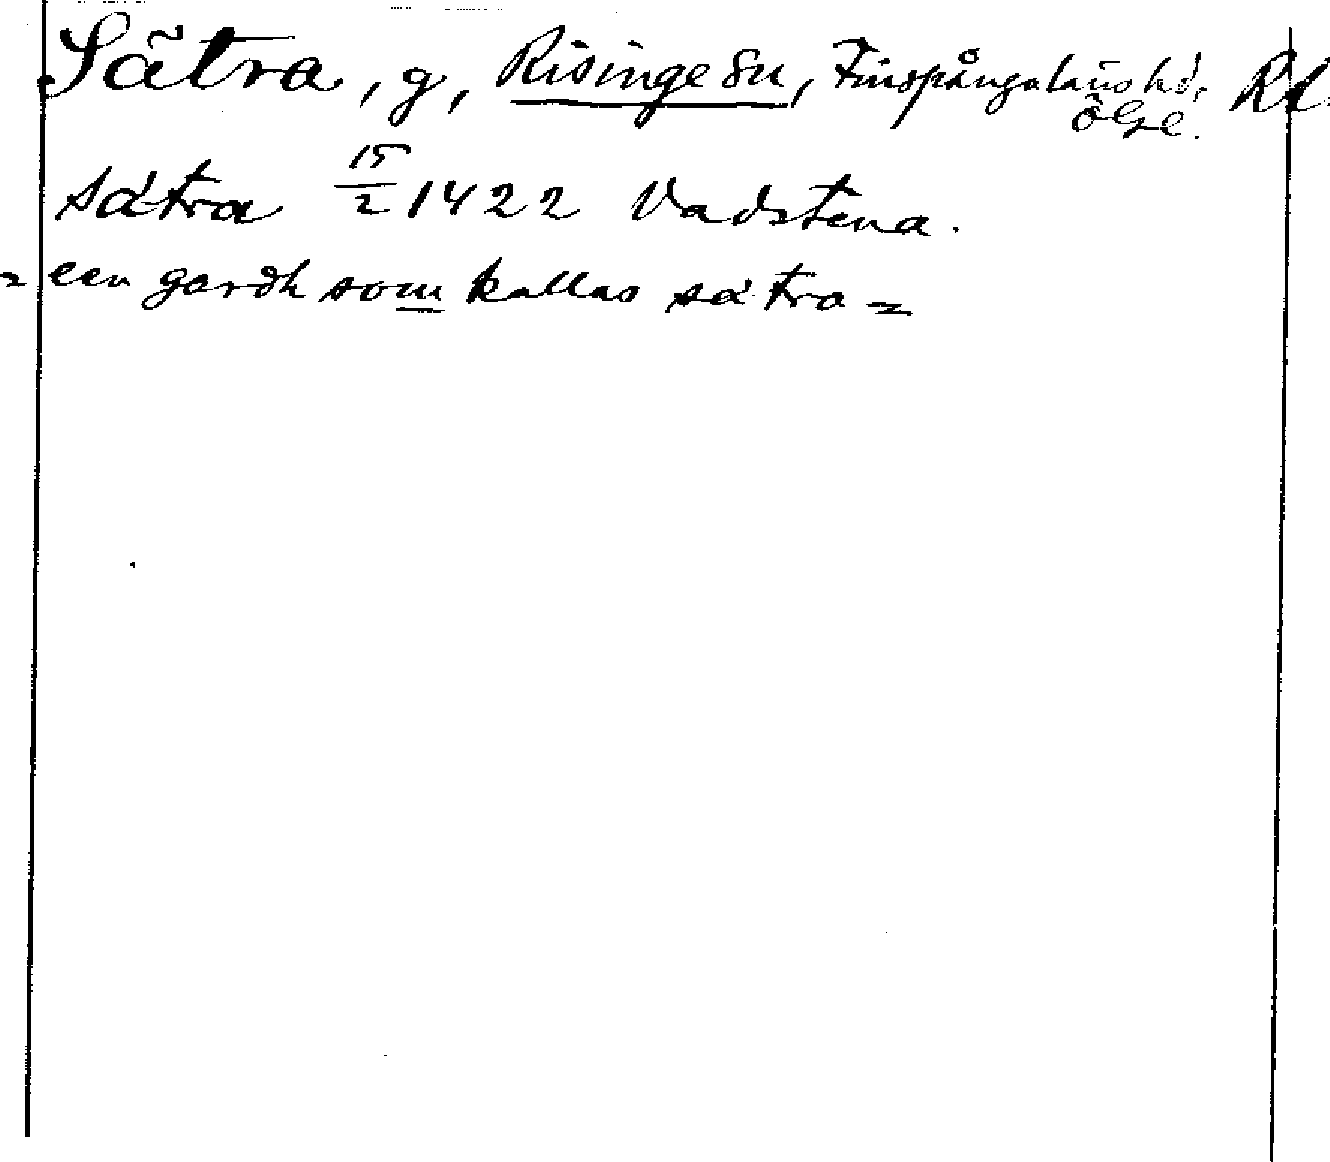 Sätra, g, Risinge sn, Finspångaläns hd, Rd.
Ögl.
sátra 15/2 1422 Vadstena.
= een gardh som kallas sátra =